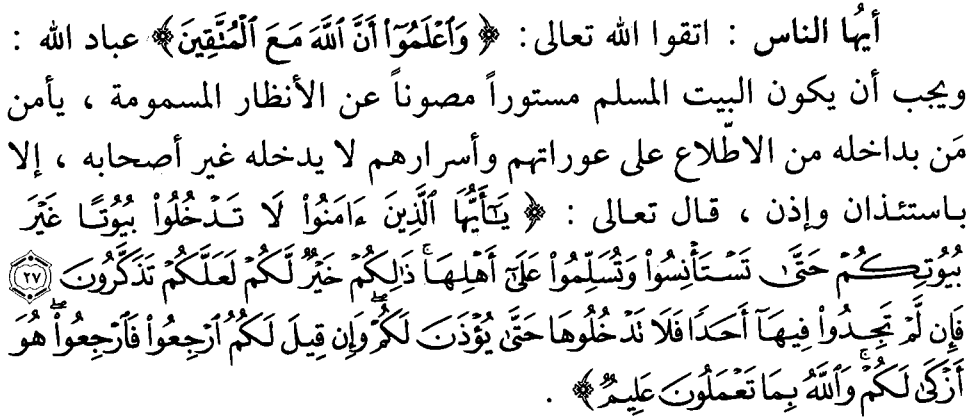 أيُّها الناس : اتقوا الله تعالى : ﴿ وَٱعْلَمُوٓا۟ أَنَّ ٱللَّهَ مَعَ ٱلْمُتَّقِينَ ﴾ عباد الله :
ويجب أن يكون البيت المسلم مستوراً مصوناً عن الأنظار المسمومة ، يأمن
مَن بداخله من الاطّلاع على عوراتهم وأسرارهم لا يدخله غير أصحابه ، إلا
باستئذان وإذن ، قال تعالى : ﴿ يَٰٓأَيُّهَا ٱلَّذِينَ ءَامَنُوا۟ لَا تَدْخُلُوا۟ بُيُوتًا غَيْرَ
بُيُوتِكُمْ حَتَّىٰ تَسْتَأْنِسُوا۟ وَتُسَلِّمُوا۟ عَلَىٰٓ أَهْلِهَا ۚ ذَٰلِكُمْ خَيْرٌ لَّكُمْ لَعَلَّكُمْ تَذَكَّرُونَ ٢٧
فَإِن لَّمْ تَجِدُوا۟ فِيهَآ أَحَدًا فَلَا تَدْخُلُوهَا حَتَّىٰ يُؤْذَنَ لَكُمْ ۖ وَإِن قِيلَ لَكُمُ ٱرْجِعُوا۟ فَٱرْجِعُوا۟ ۖ هُوَ
أَزْكَىٰ لَكُمْ ۚ وَٱللَّهُ بِمَا تَعْمَلُونَ عَلِيمٌ ﴾ .